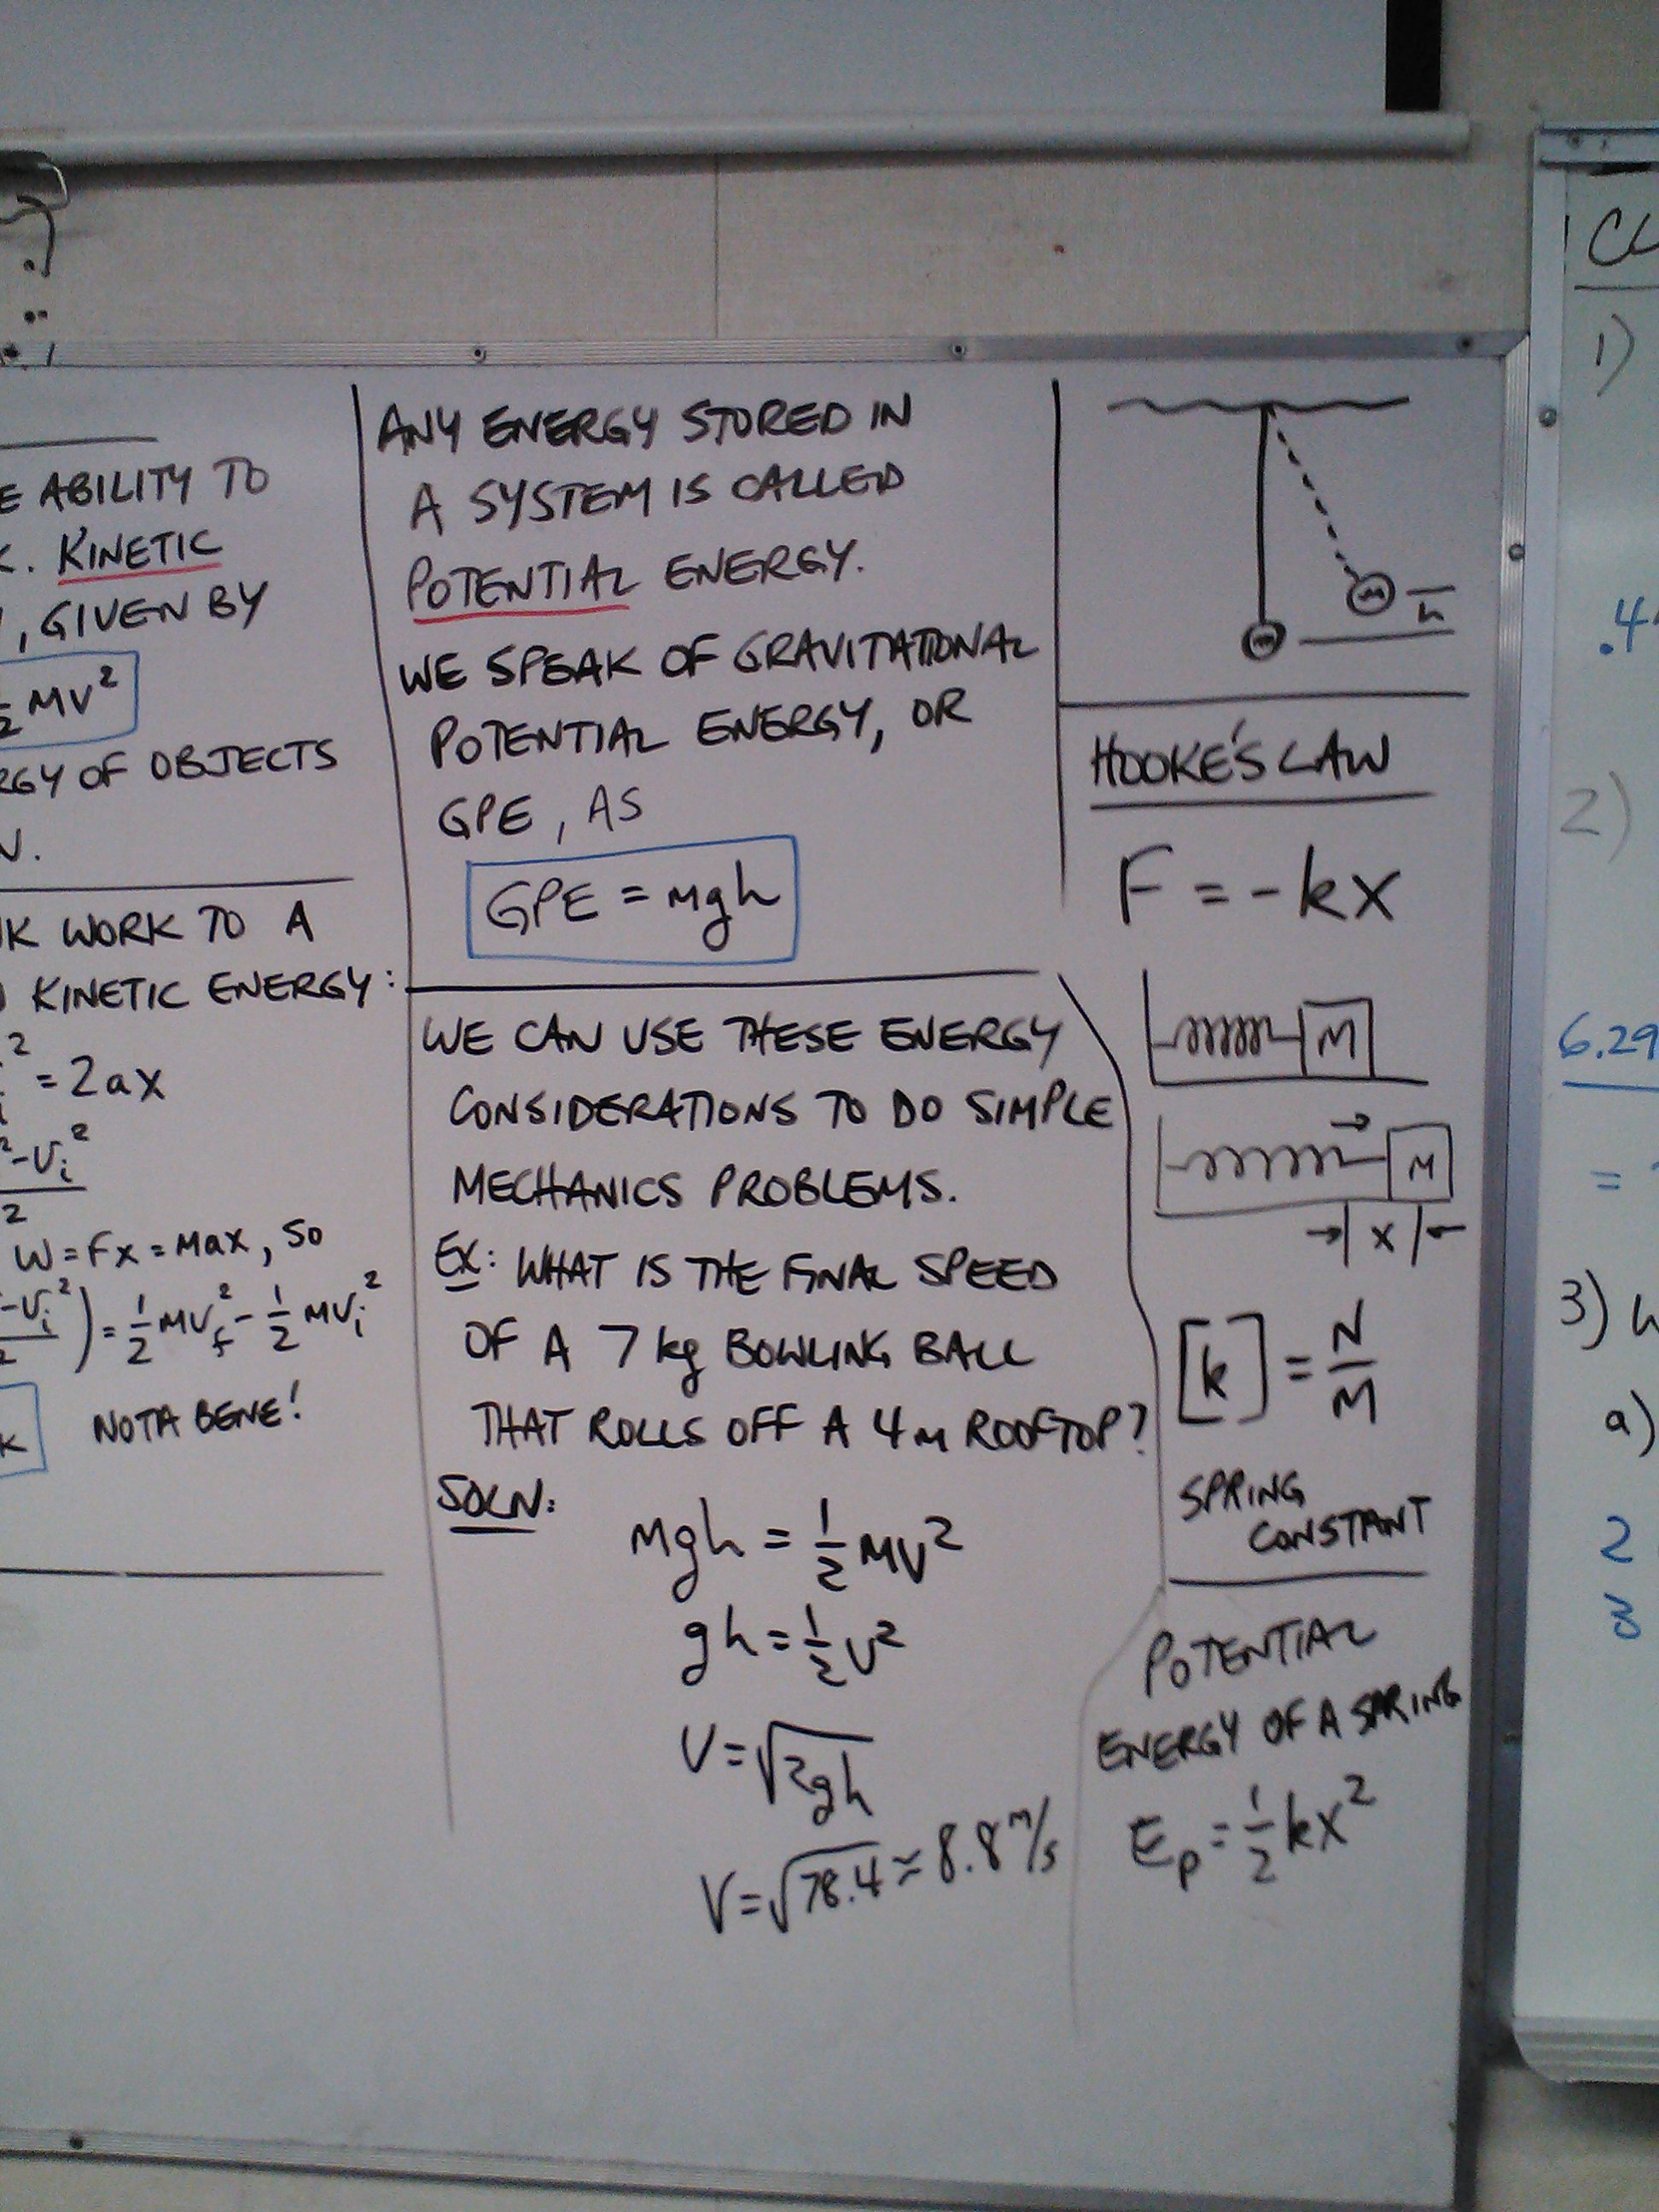 E ABILITY TO
K. KINETIC
, GIVEN BY
½ MV²
RGY OF OBJECTS
N.
NK WORK TO A
KINETIC ENERGY:
² = 2ax
²-Vi²
2
W = Fx = Max, SO
-Vi²) = ½ MVf² - ½ MVi²
K NOTA BENE!
ANY ENERGY STORED IN
A SYSTEM IS CALLED
POTENTIAL ENERGY.
WE SPEAK OF GRAVITATIONAL
POTENTIAL ENERGY, OR
GPE, AS
GPE = mgh
WE CAN USE THESE ENERGY
CONSIDERATIONS TO DO SIMPLE
MECHANICS PROBLEMS.
EX: WHAT IS THE FINAL SPEED
OF A 7 kg BOWLING BALL
THAT ROLLS OFF A 4m ROOFTOP?
SOLN:
Mgh = ½ MV²
gh = ½ V²
V = √2gh
V = √78.4 ≈ 8.8 m/s
M
h
M
HOOKE'S LAW
F = -kx
M
M
x
[k] = N/M
SPRING
CONSTANT
POTENTIAL
ENERGY OF A SPRING
Ep = ½ kx²
1)
.4
2)
6.29
=
3)
a)
2
3